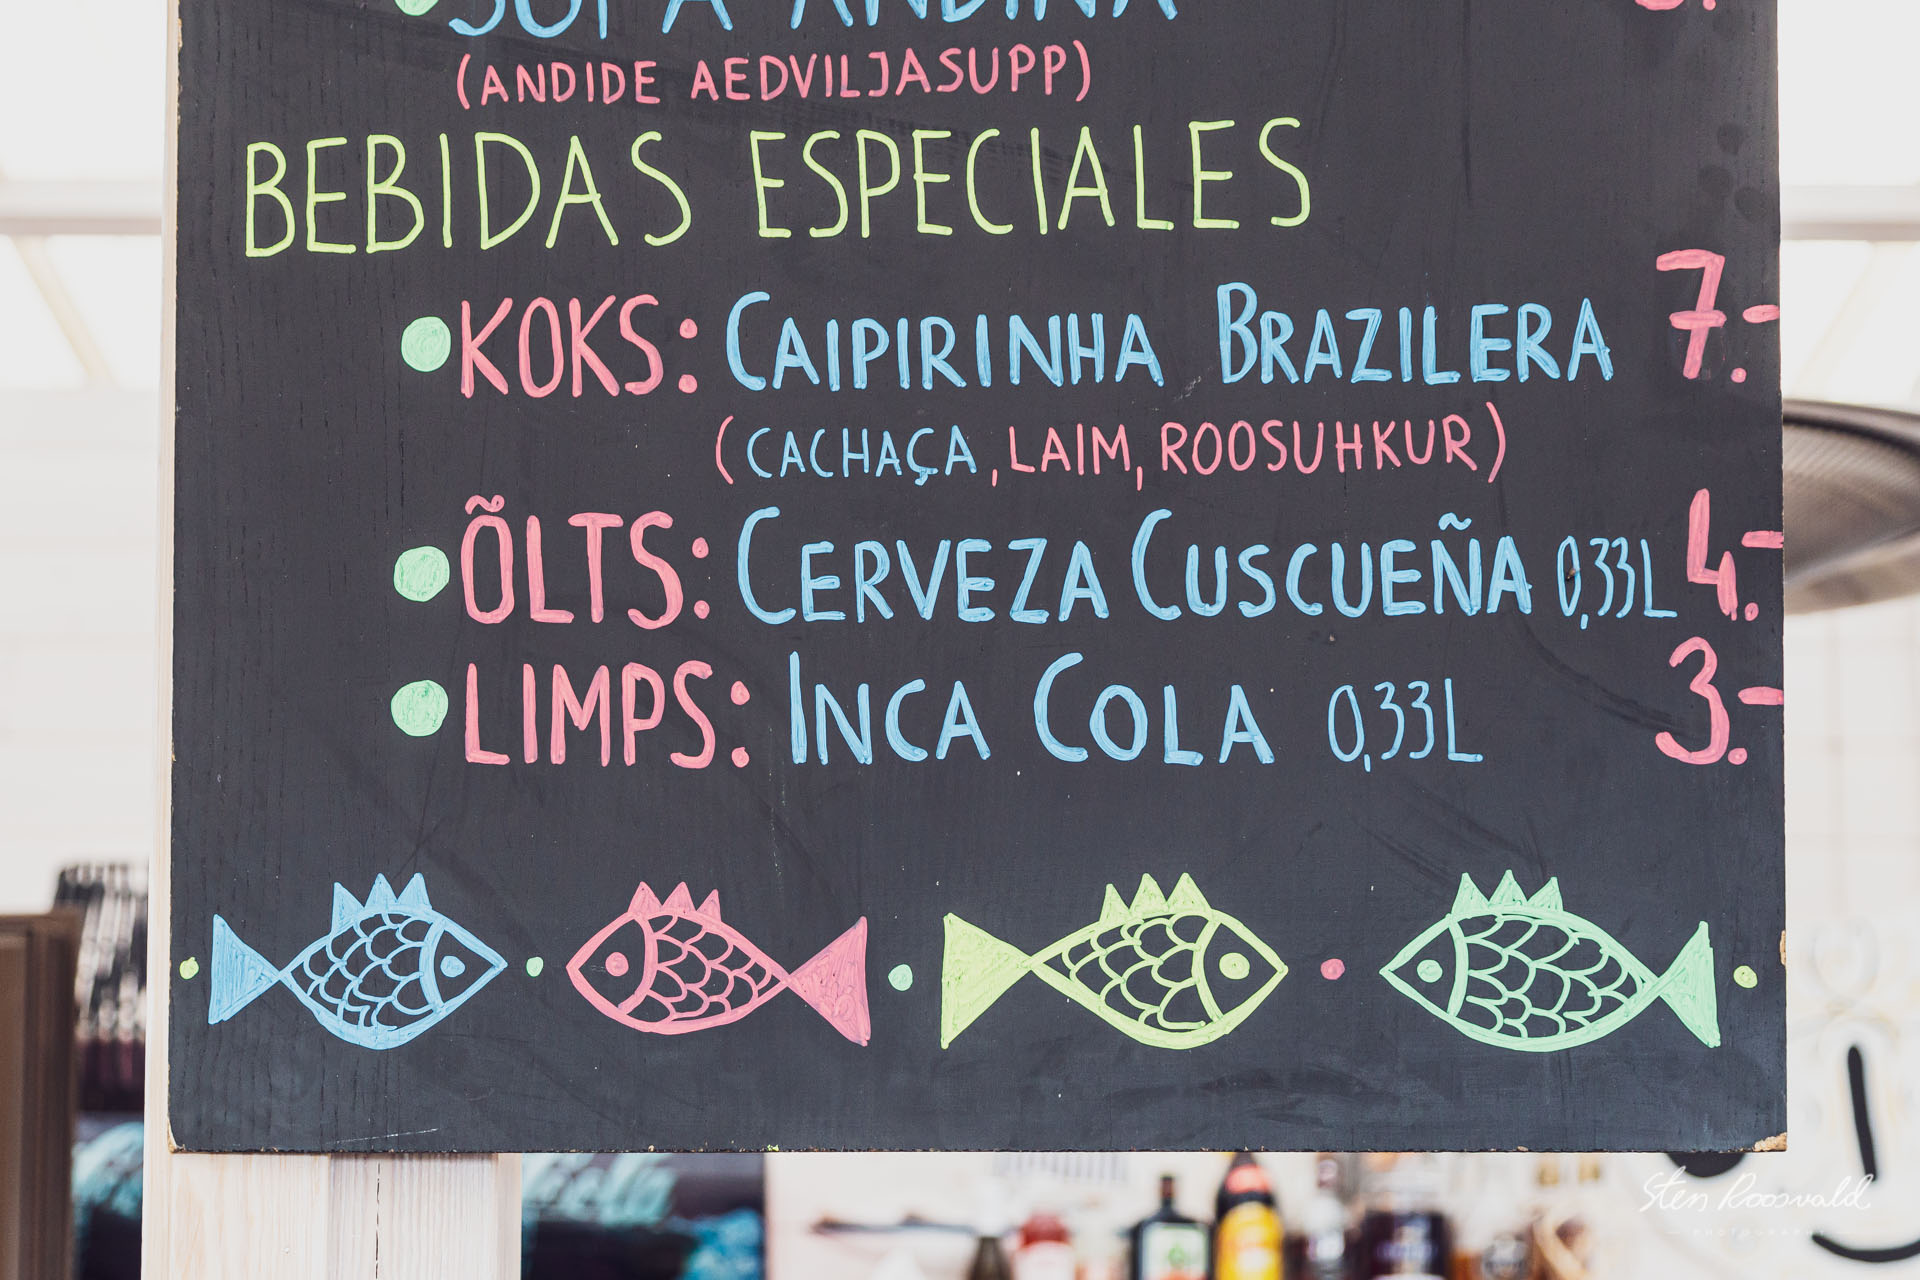 SOPA ANDINA
(ANDIDE AEDVILJASUPP)
BEBIDAS ESPECIALES
KOKS: CAIPIRINHA BRAZILERA 7.-
(CACHAÇA, LAIM, ROOSUHKUR)
ÕLTS: CERVEZA CUSCUEÑA 0,33L 4.-
LIMPS: INCA COLA 0,33L 3.-
Sten Roosvald